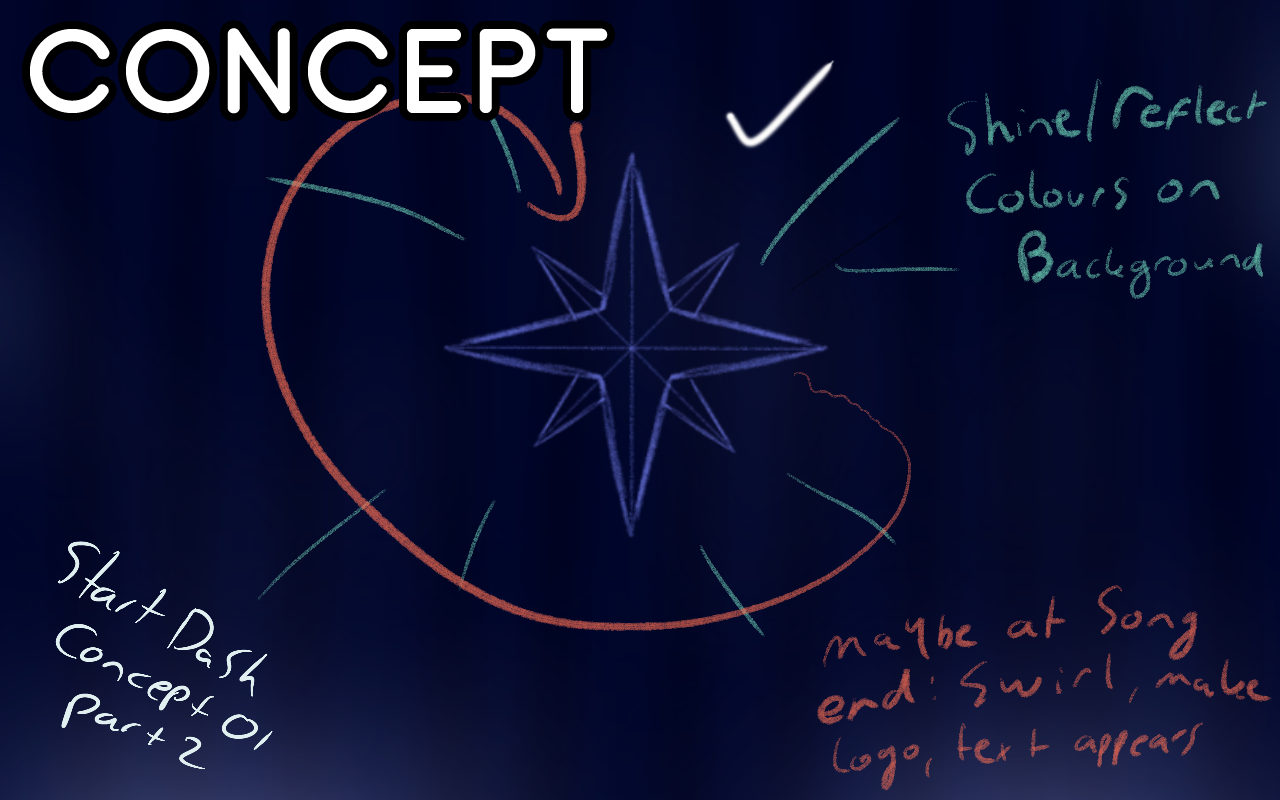 CONCEPT
Shine/reflect
Colours on
Background
Start Dash
Concept 01
Part 2
maybe at Song
end: Swirl, make
logo, text appears